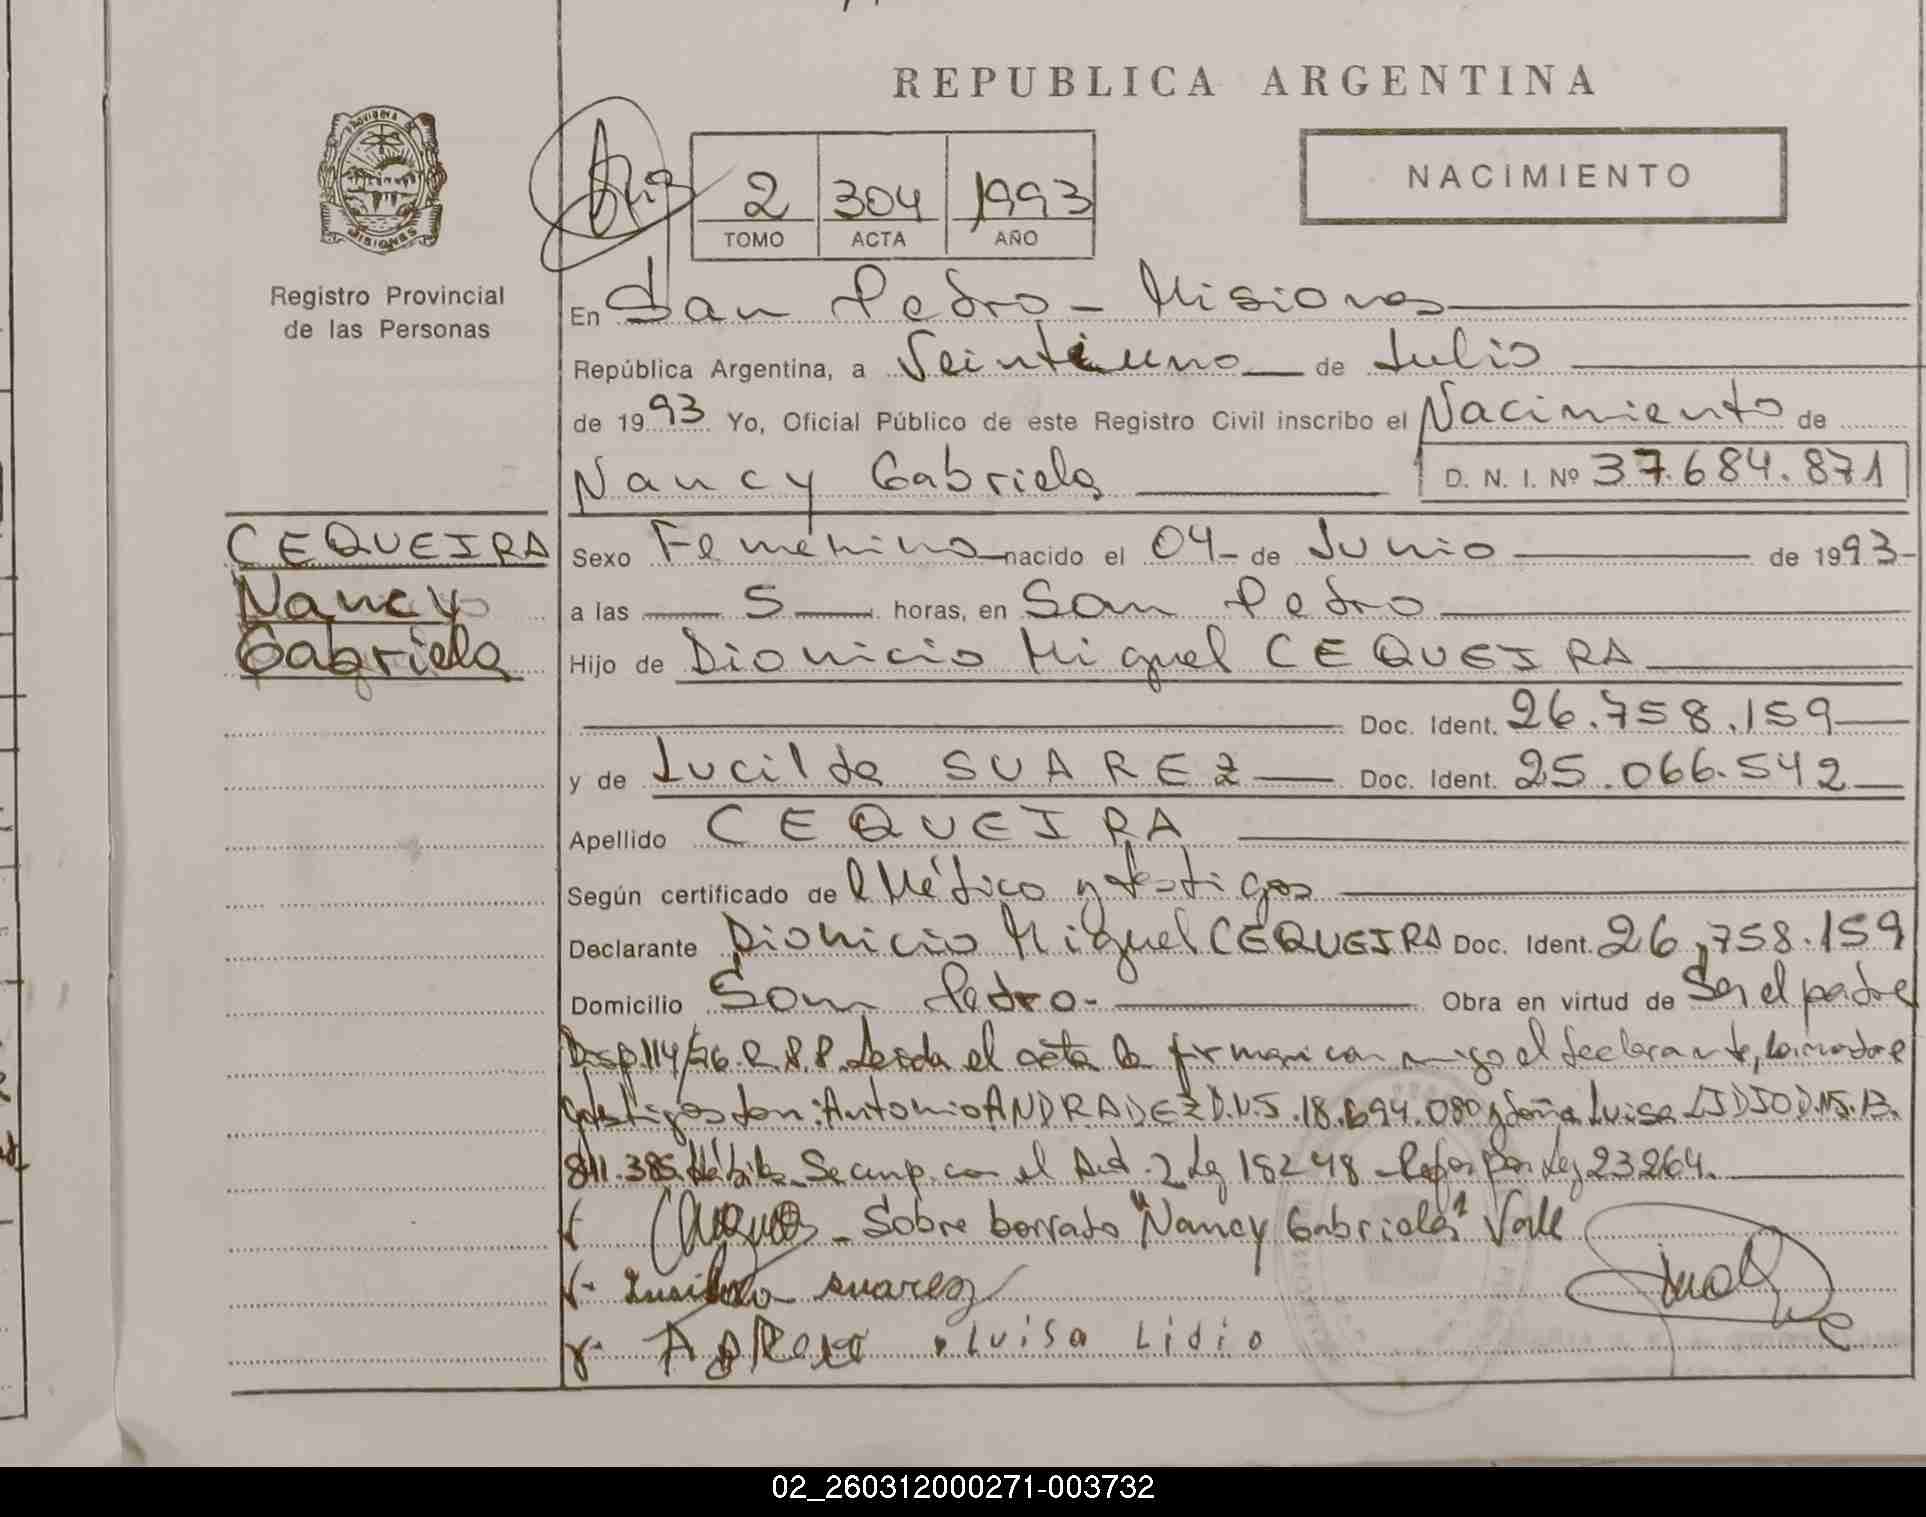 REPUBLICA ARGENTINA
NACIMIENTO
PROVINCIA DE
MISIONES
2 304 1993
TOMO ACTA AÑO
Registro Provincial
de las Personas
En San Pedro - Misiones
República Argentina, a Veintiuno de Julio
de 1993 Yo, Oficial Público de este Registro Civil inscribo el Nacimiento de
Nancy Gabriela D. N. I. Nº 37.684.871
CEQUEIRA
Nancy
Gabriela
Sexo Femenino nacido el 04 - de Junio de 1993-
a las 5 horas, en San Pedro
Hijo de Dionicio Miguel CEQUEIRA
Doc. Ident. 26.758.159
y de Lucilda SUAREZ Doc. Ident. 25.066.542
Apellido CEQUEIRA
Según certificado de l Médico y testigos
Declarante Dionicio Miguel CEQUEIRA Doc. Ident. 26.758.159
Domicilio San Pedro.- Obra en virtud de Ser el padre
Disp. 114/ Leida el acta la firman con migo el declarante, la madre
y testigos don: Antonio ANDRADEZ D.N.I. 18.694.080 y doña Luisa LIDIO D.N.I. 13.
811.385. Hábiles. Se cump. con el Art. 2 Ley 18248 - Refor por Ley 23264.
- Sobre borrado "Nancy Gabriela" Vale
suarez
Luisa Lidio
02_260312000271-003732